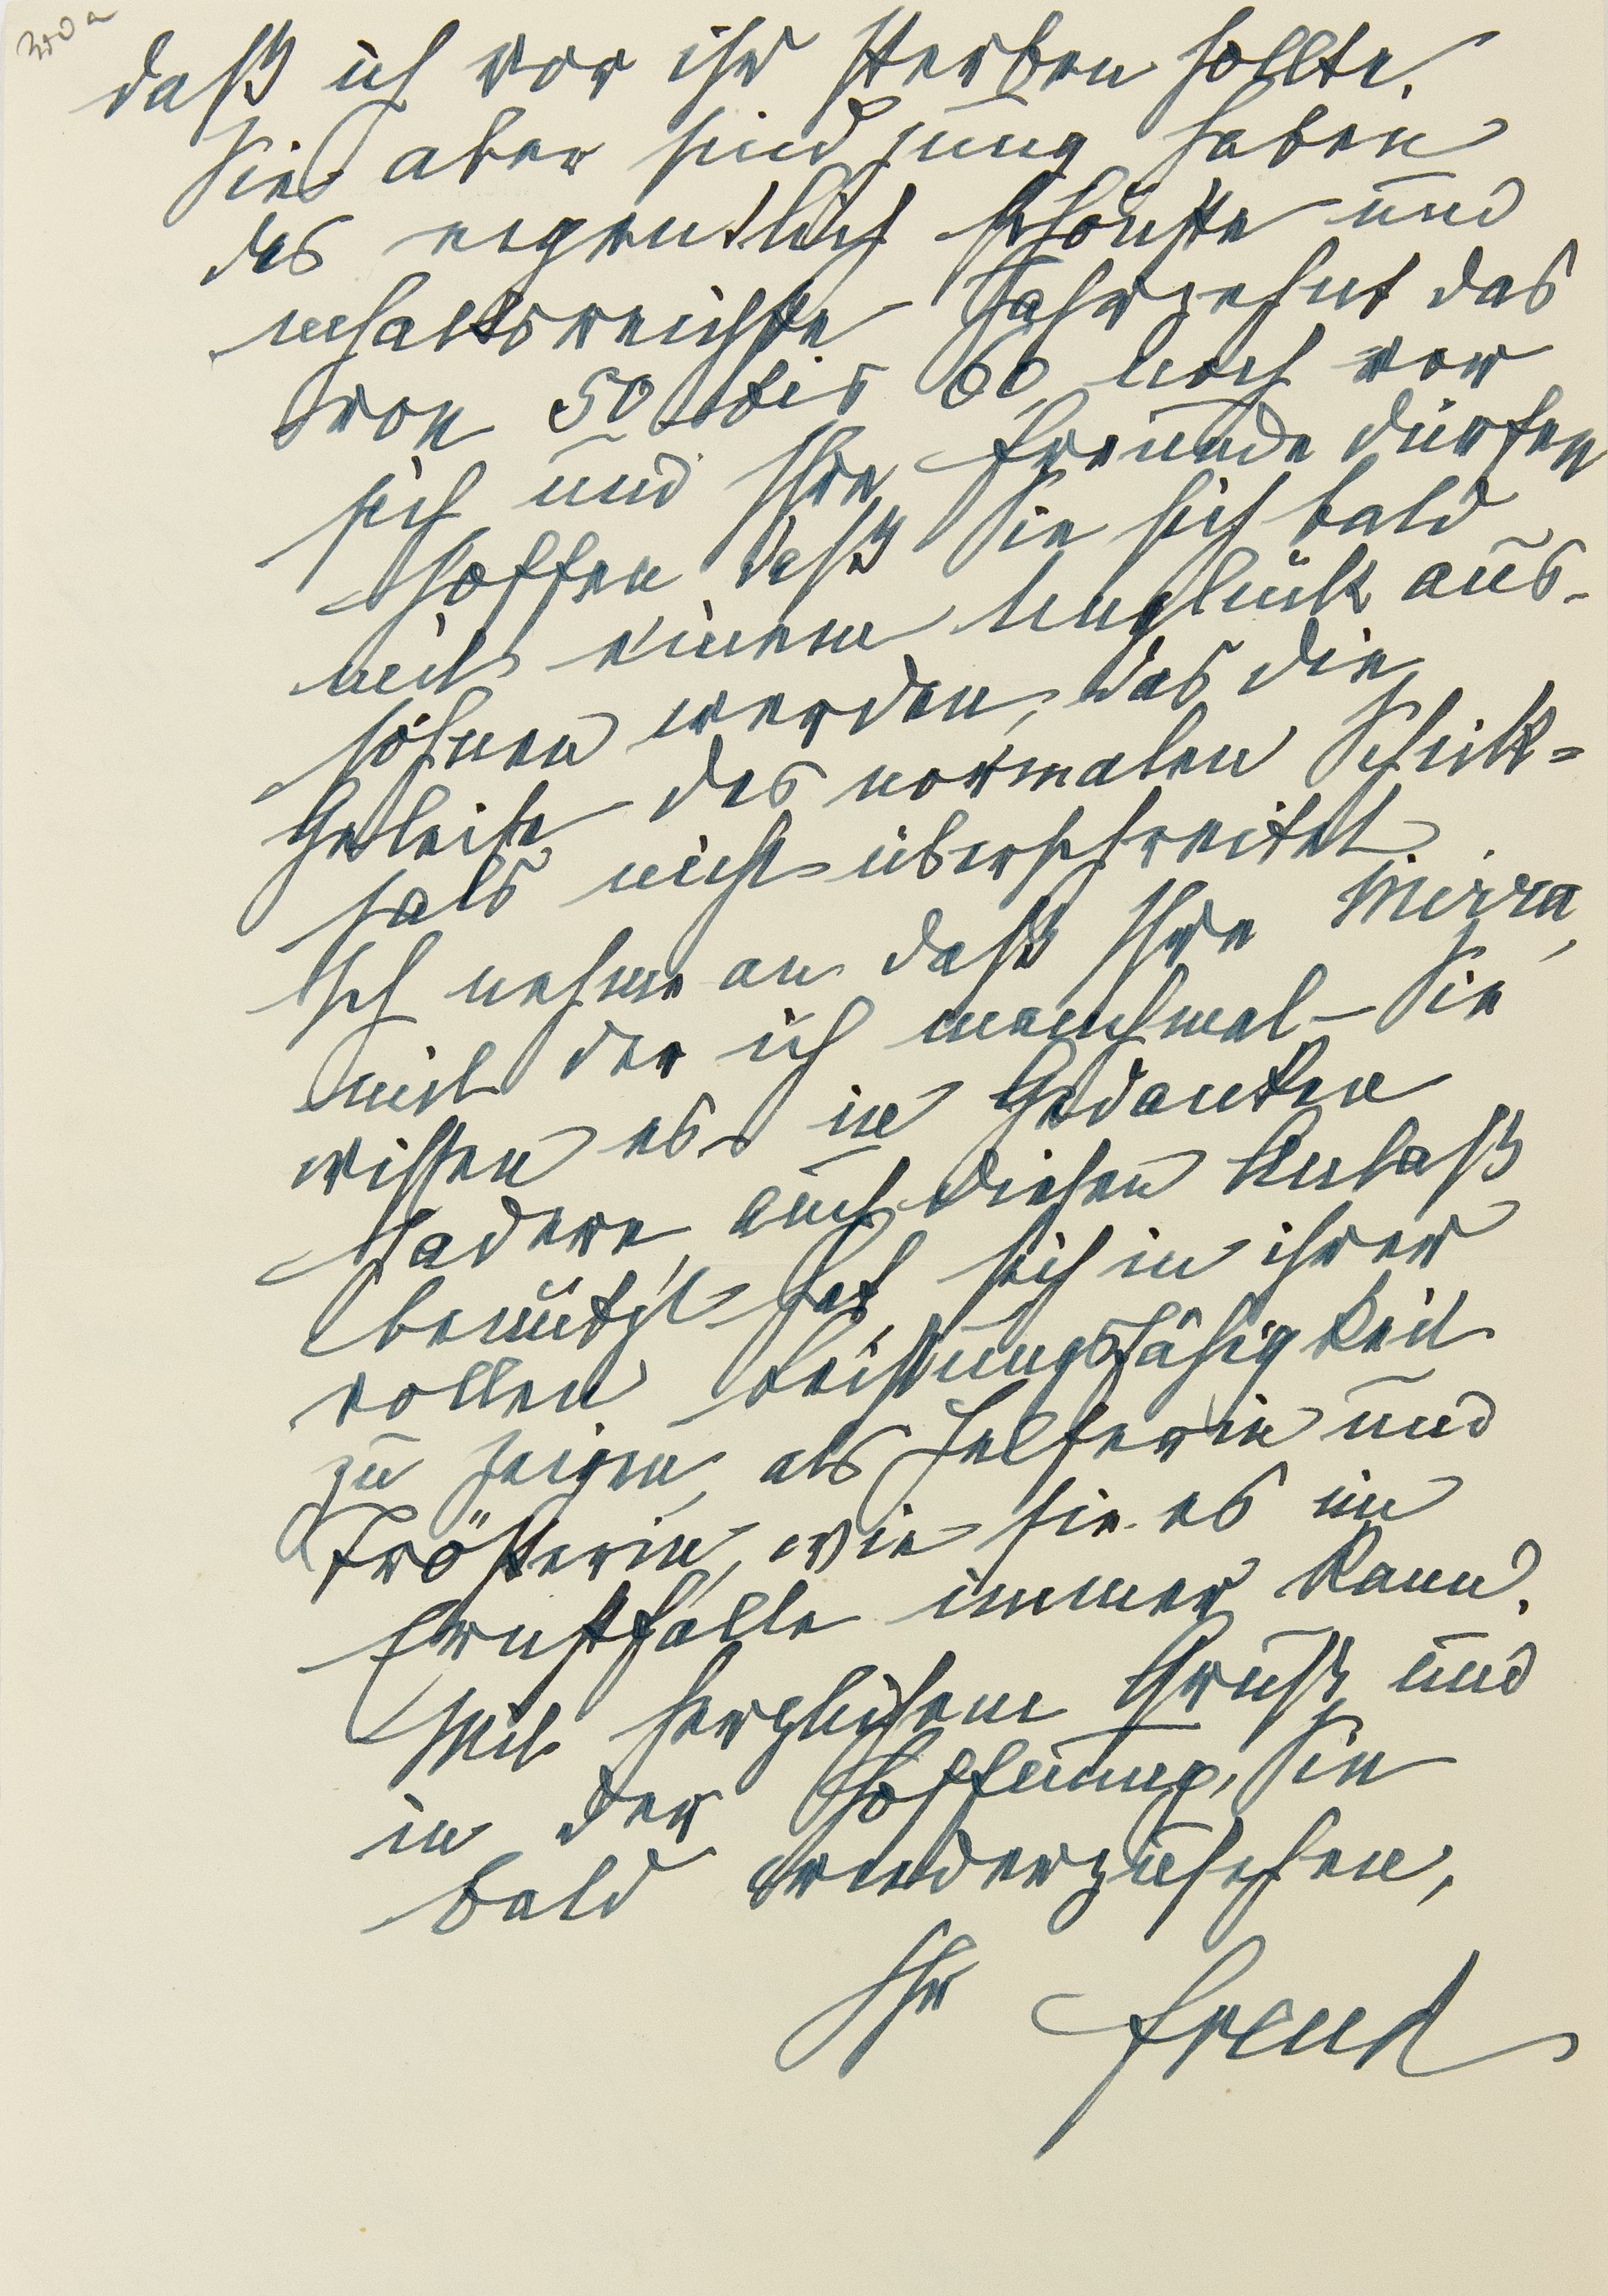 350a
daß ich vor ihr sterben sollte.
Sie aber sind jung haben
das eigentlich schönste und
inhaltsreichste Jahrzehnt das
von 50 bis 60 noch vor
sich und Ihre Freunde dürfen
hoffen daß Sie sich bald
mit einem Unglück aus-
söhnen werden, das die
Geleise des normalen Schick=
sals nicht überschreitet.
Ich nehme an daß Ihre Mirra,
mit der ich manchmal – Sie
wissen es – in Gedanken
hadere, auch diesen Anlaß
benützt hat, sich in ihrer
vollen Leistungsfähigkeit
zu zeigen, als Helferin und
Trösterin, wie sie es im
Ernstfalle immer kann.
Mit herzlichem Gruß und
in der Hoffnung, Sie
bald wiederzusehen,
Ihr Freud